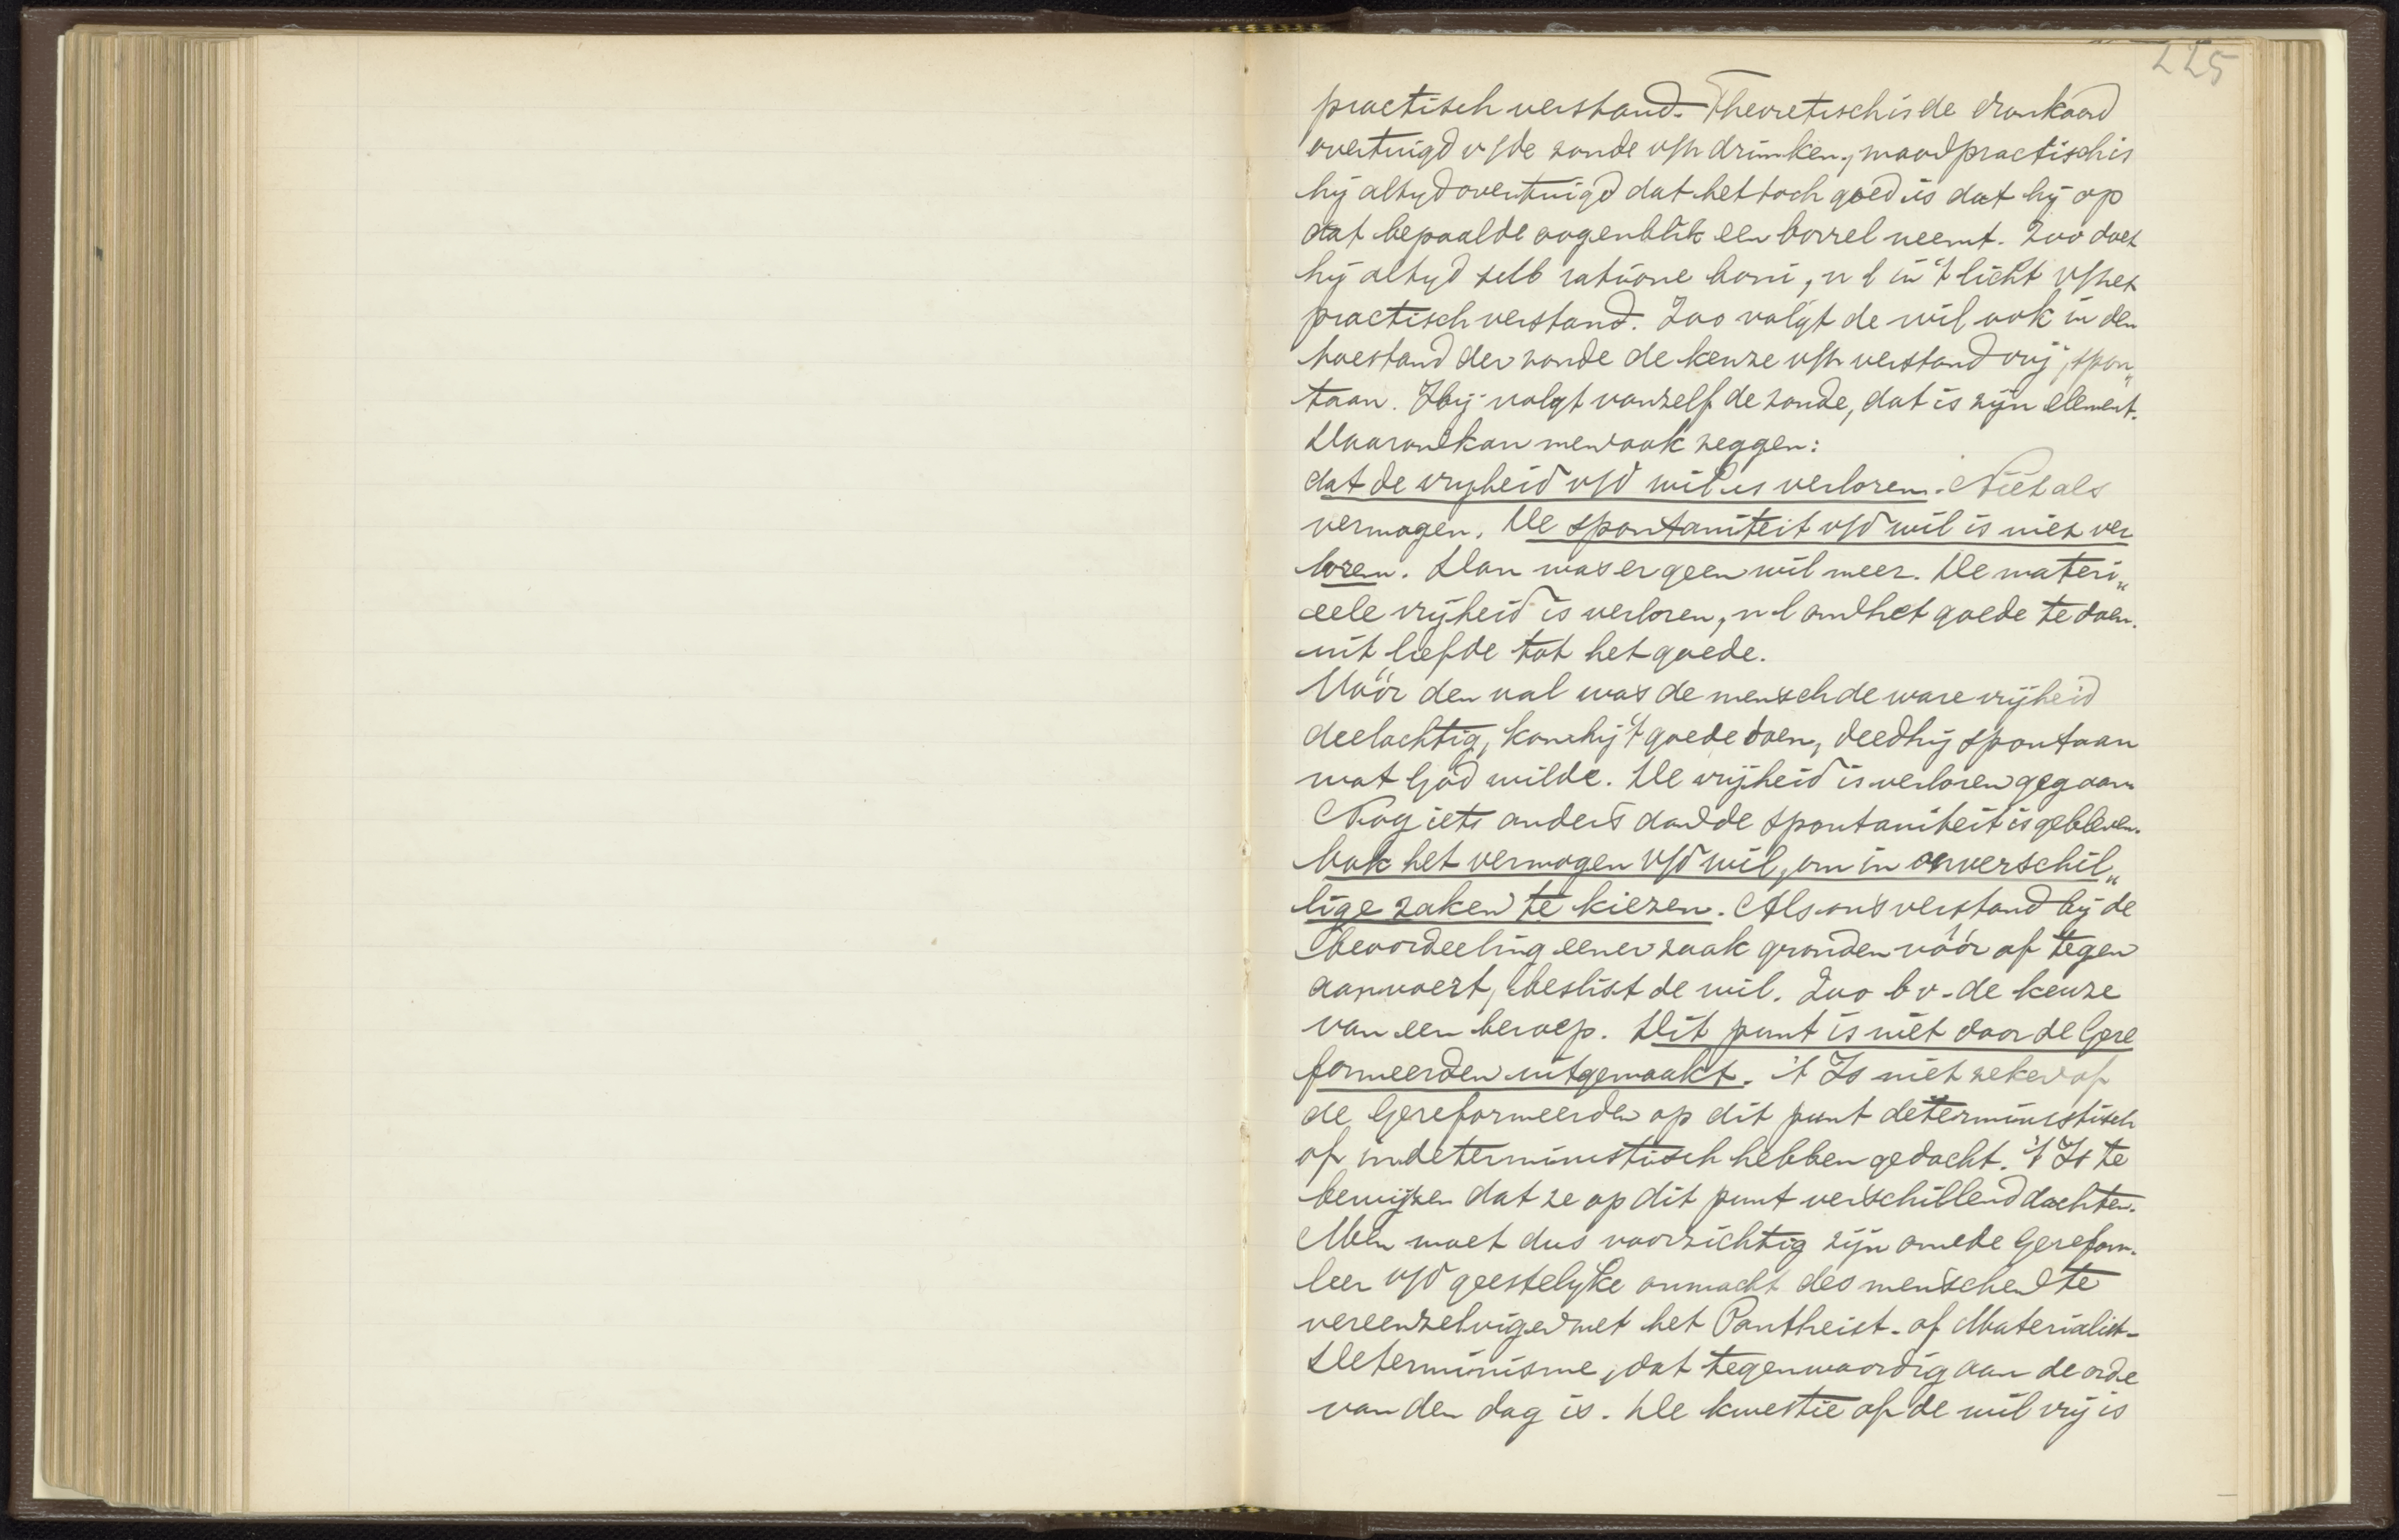 225
practisch verstand. Theoretisch is de dronkaard
overtuigd v/de zonde v/h drinken, maar practisch is
hij altyd overtuigd dat het toch goed is dat hij op
dat bepaalde oogenblik een borrel neemt. Zoo doet
hij altyd sub ratione boni, n l in 't licht v/het
practisch verstand. Zoo volgt de wil ook in den
toestand der zonde de keuze v/h verstand vrij, spon„
taan. Hij volgt vanzelf de zonde, dat is zijn element.
Daarom kan men ook zeggen:
dat de vryheid v/d wil is verloren. Niet als
vermogen. De spontaniteit v/d wil is niet ver
loren. Dan was er geen wil meer. De materi„
eele vrijheid is verloren, n l om het goede te doen
uit liefde tot het goede.
Vóór den val was de mensch de ware vrijheid
deelachtig, kon hij 't goede doen, deed hij spontaan
wat God wilde. De vrijheid is verloren gegaan
Nog iets anders dan de spontaniteit is gebleven.
Ook het vermogen v/d wil, om in onverschil„
lige zaken te kiezen. Als ons verstand bij de
beoordeeling eener zaak gronden vóór of tegen
aanvoert, beslist de wil. Zoo bv. de keuze
van een beroep. Dit punt is niet door de Gere
formeerden uitgemaakt. 't Is niet zeker of
de Gereformeerden op dit punt deterministisch
of indeterministisch hebben gedacht. 't Is te
bewijzen dat ze op dit punt verschillend dachten.
Men moet dus voorzichtig zijn om de Gereform.
leer v/d geestelyke onmacht des menschen te
vereenzelvigen met het Pantheist. of Materialist-
Determinisme, dat tegenwoordig aan de orde
van den dag is. De kwestie of de wil vrij is